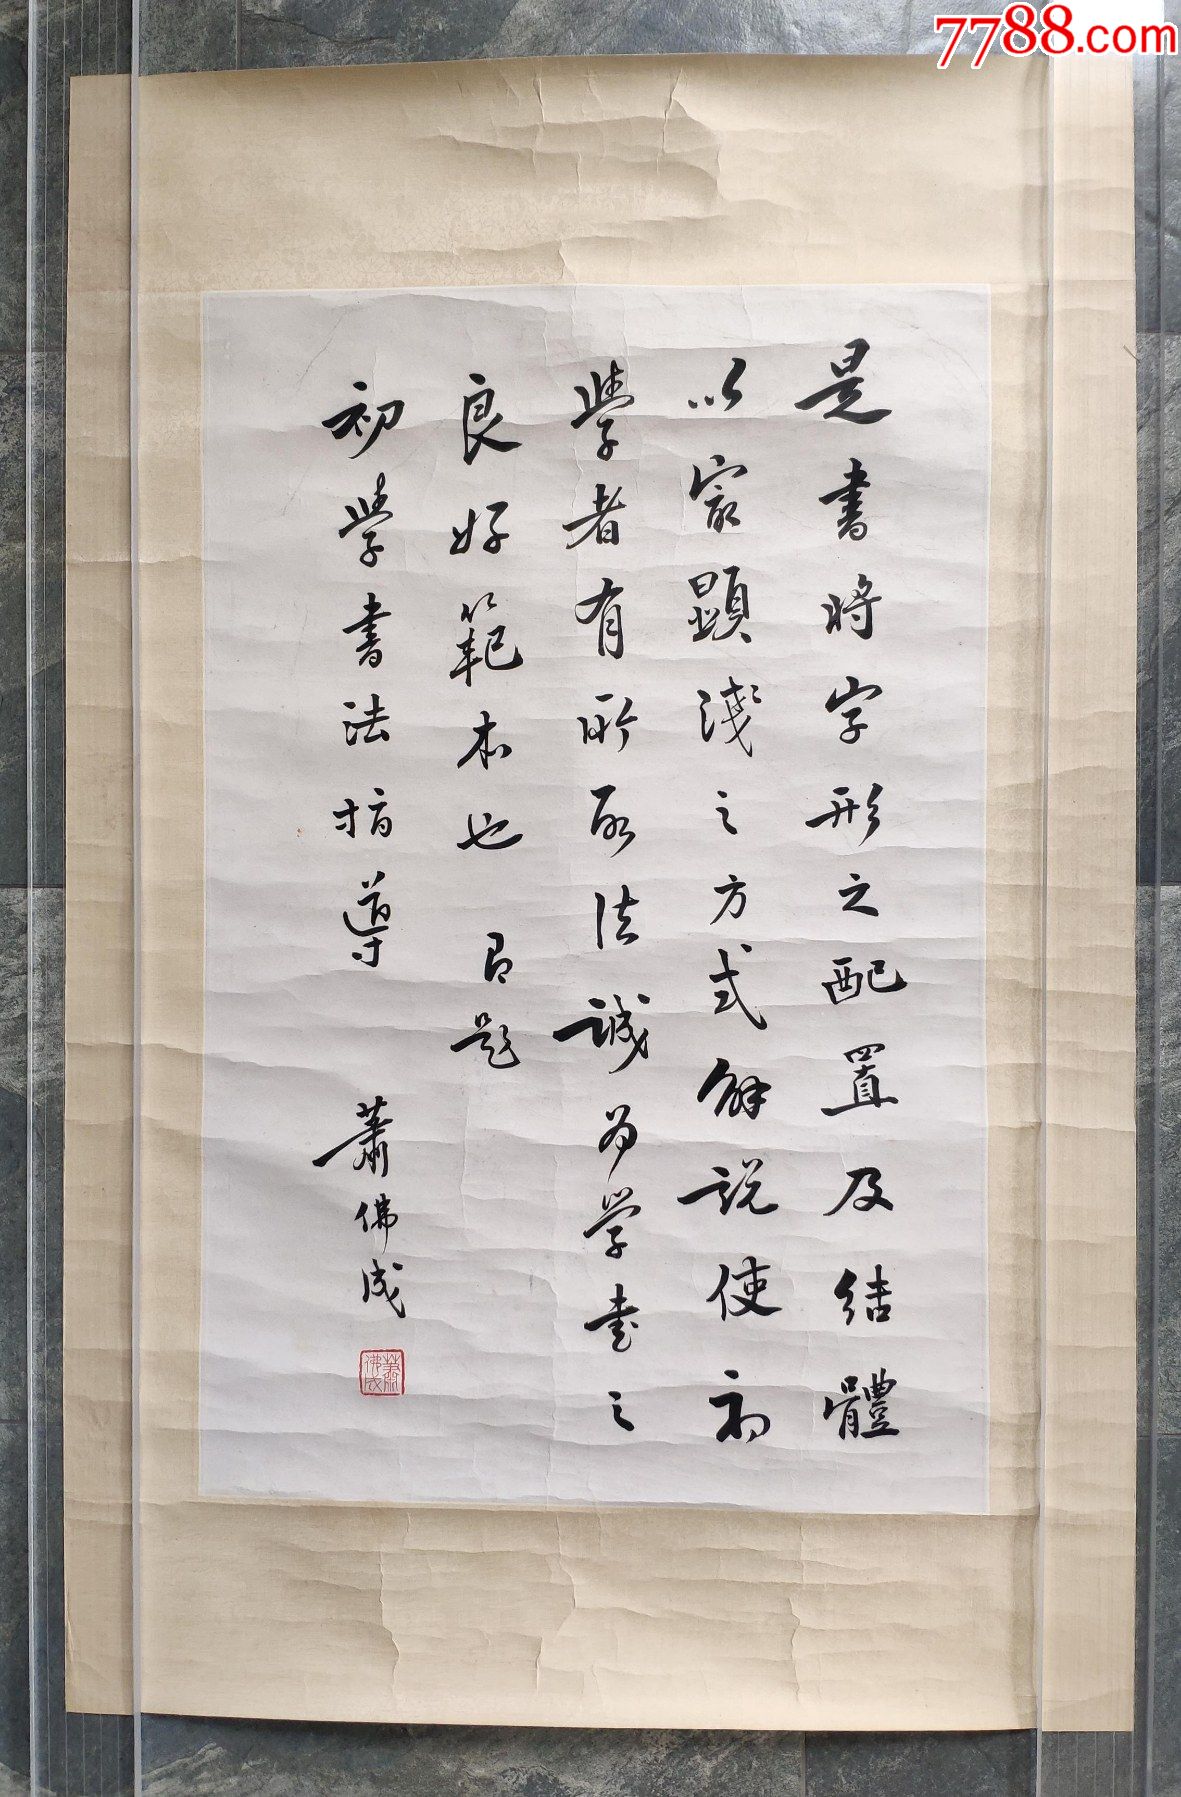 是書將字形之配置及結體
以寂顯淺之方式解說使初
學者有所取法誠為學書之
良好範本也 即題
初學書法指導 蕭佛成
蕭佛成
7788.com